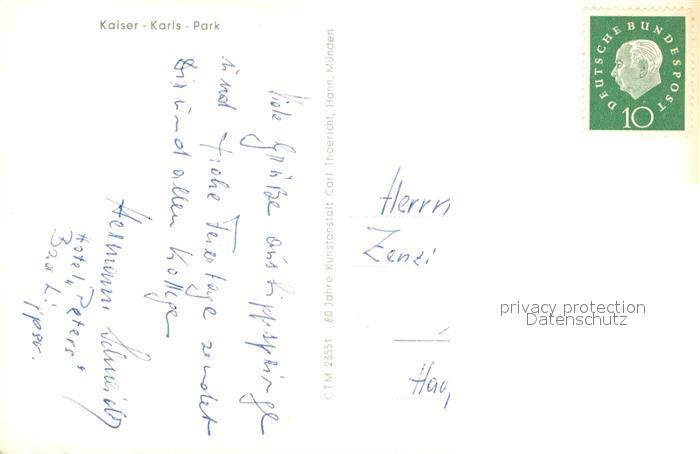 Kaiser - Karls - Park
Viele Grüße aus Lippspringe
und frohe Feiertage sendet
Dir und allen Kollegen
Hermann Schneider
Hotel „Peters“
Bad Lippspr.
CTM 23551 80 Jahre Kunstanstalt Carl Thoericht, Hann. Münden
DEUTSCHE BUNDESPOST
10
Herrn
Zenzi
Hau
privacy protection
Datenschutz